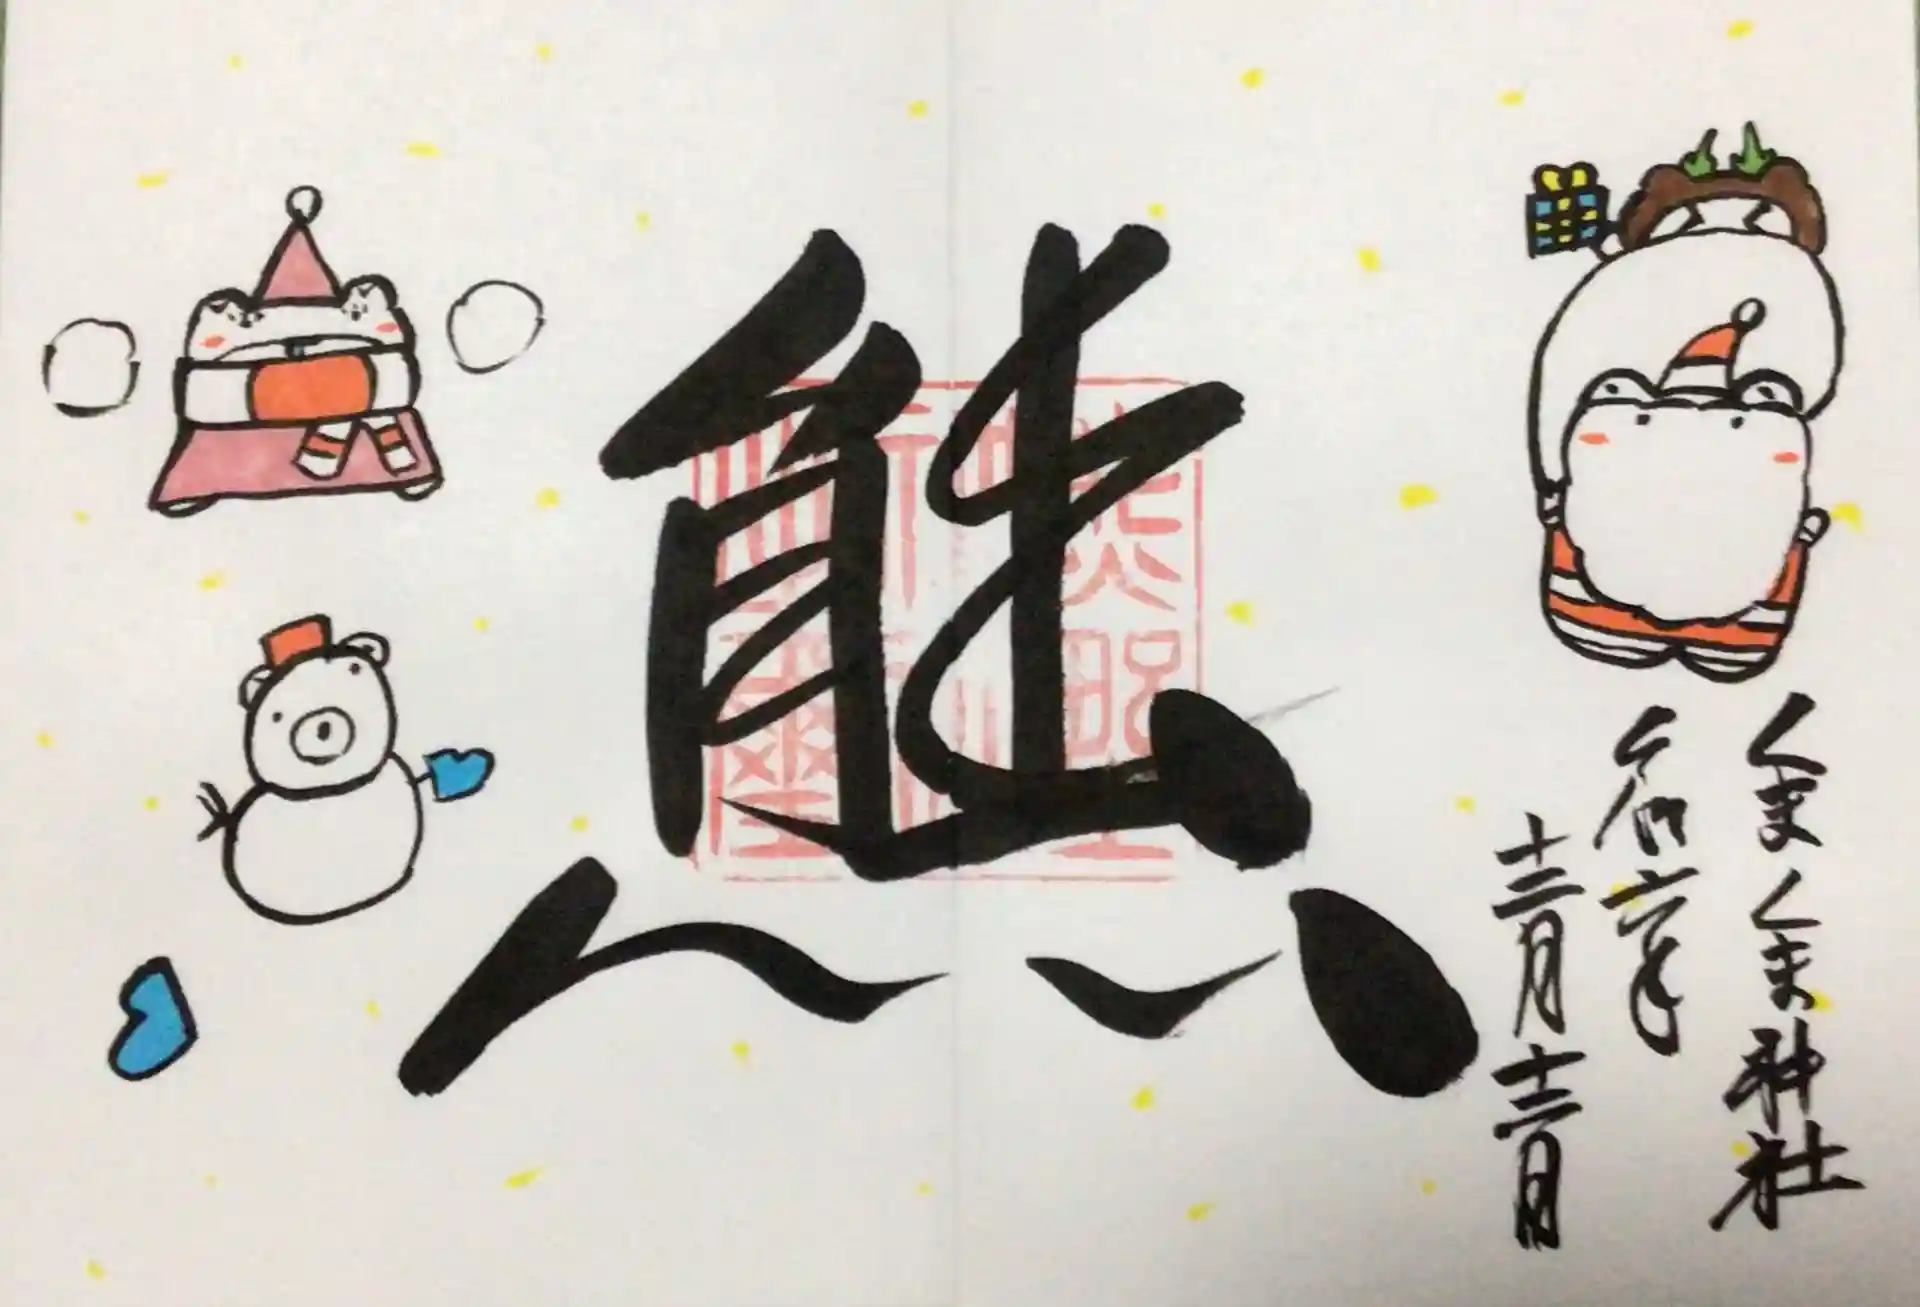 くまくま神社
令和六年
十二月十二日
熊